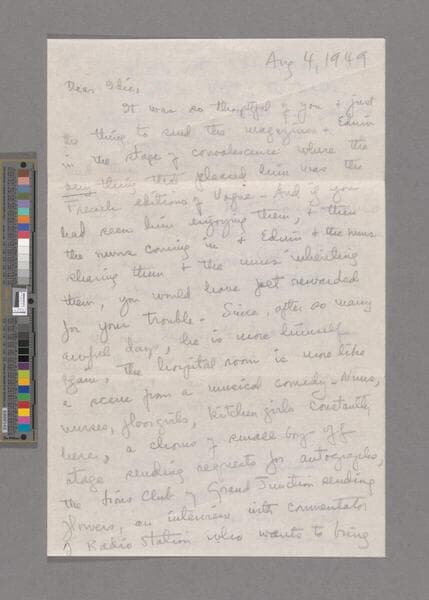 Aug 4, 1949
Dear Edie,
It was so thoughtful of you & just
the thing to send the magazines. Edwin
in the stage of convalescence where the
only thing that pleased him was the
French editions of Vogue - And if you
had seen him enjoying them, & then
the nuns coming in & Edwin & the nuns
sharing them & the nurses inheriting
them, you would have felt rewarded
for your trouble - Since, after so many
awful days, he is more himself
again, the hospital room is more like
a scene from a musical comedy - Nuns,
nurses, floorgirls, kitchen girls constantly
here, a chorus of small boys off
stage sending requests for autographs,
the Lions Club of Grand Junction sending
flowers, an interview with commentator
of Radio Station who wants to bring